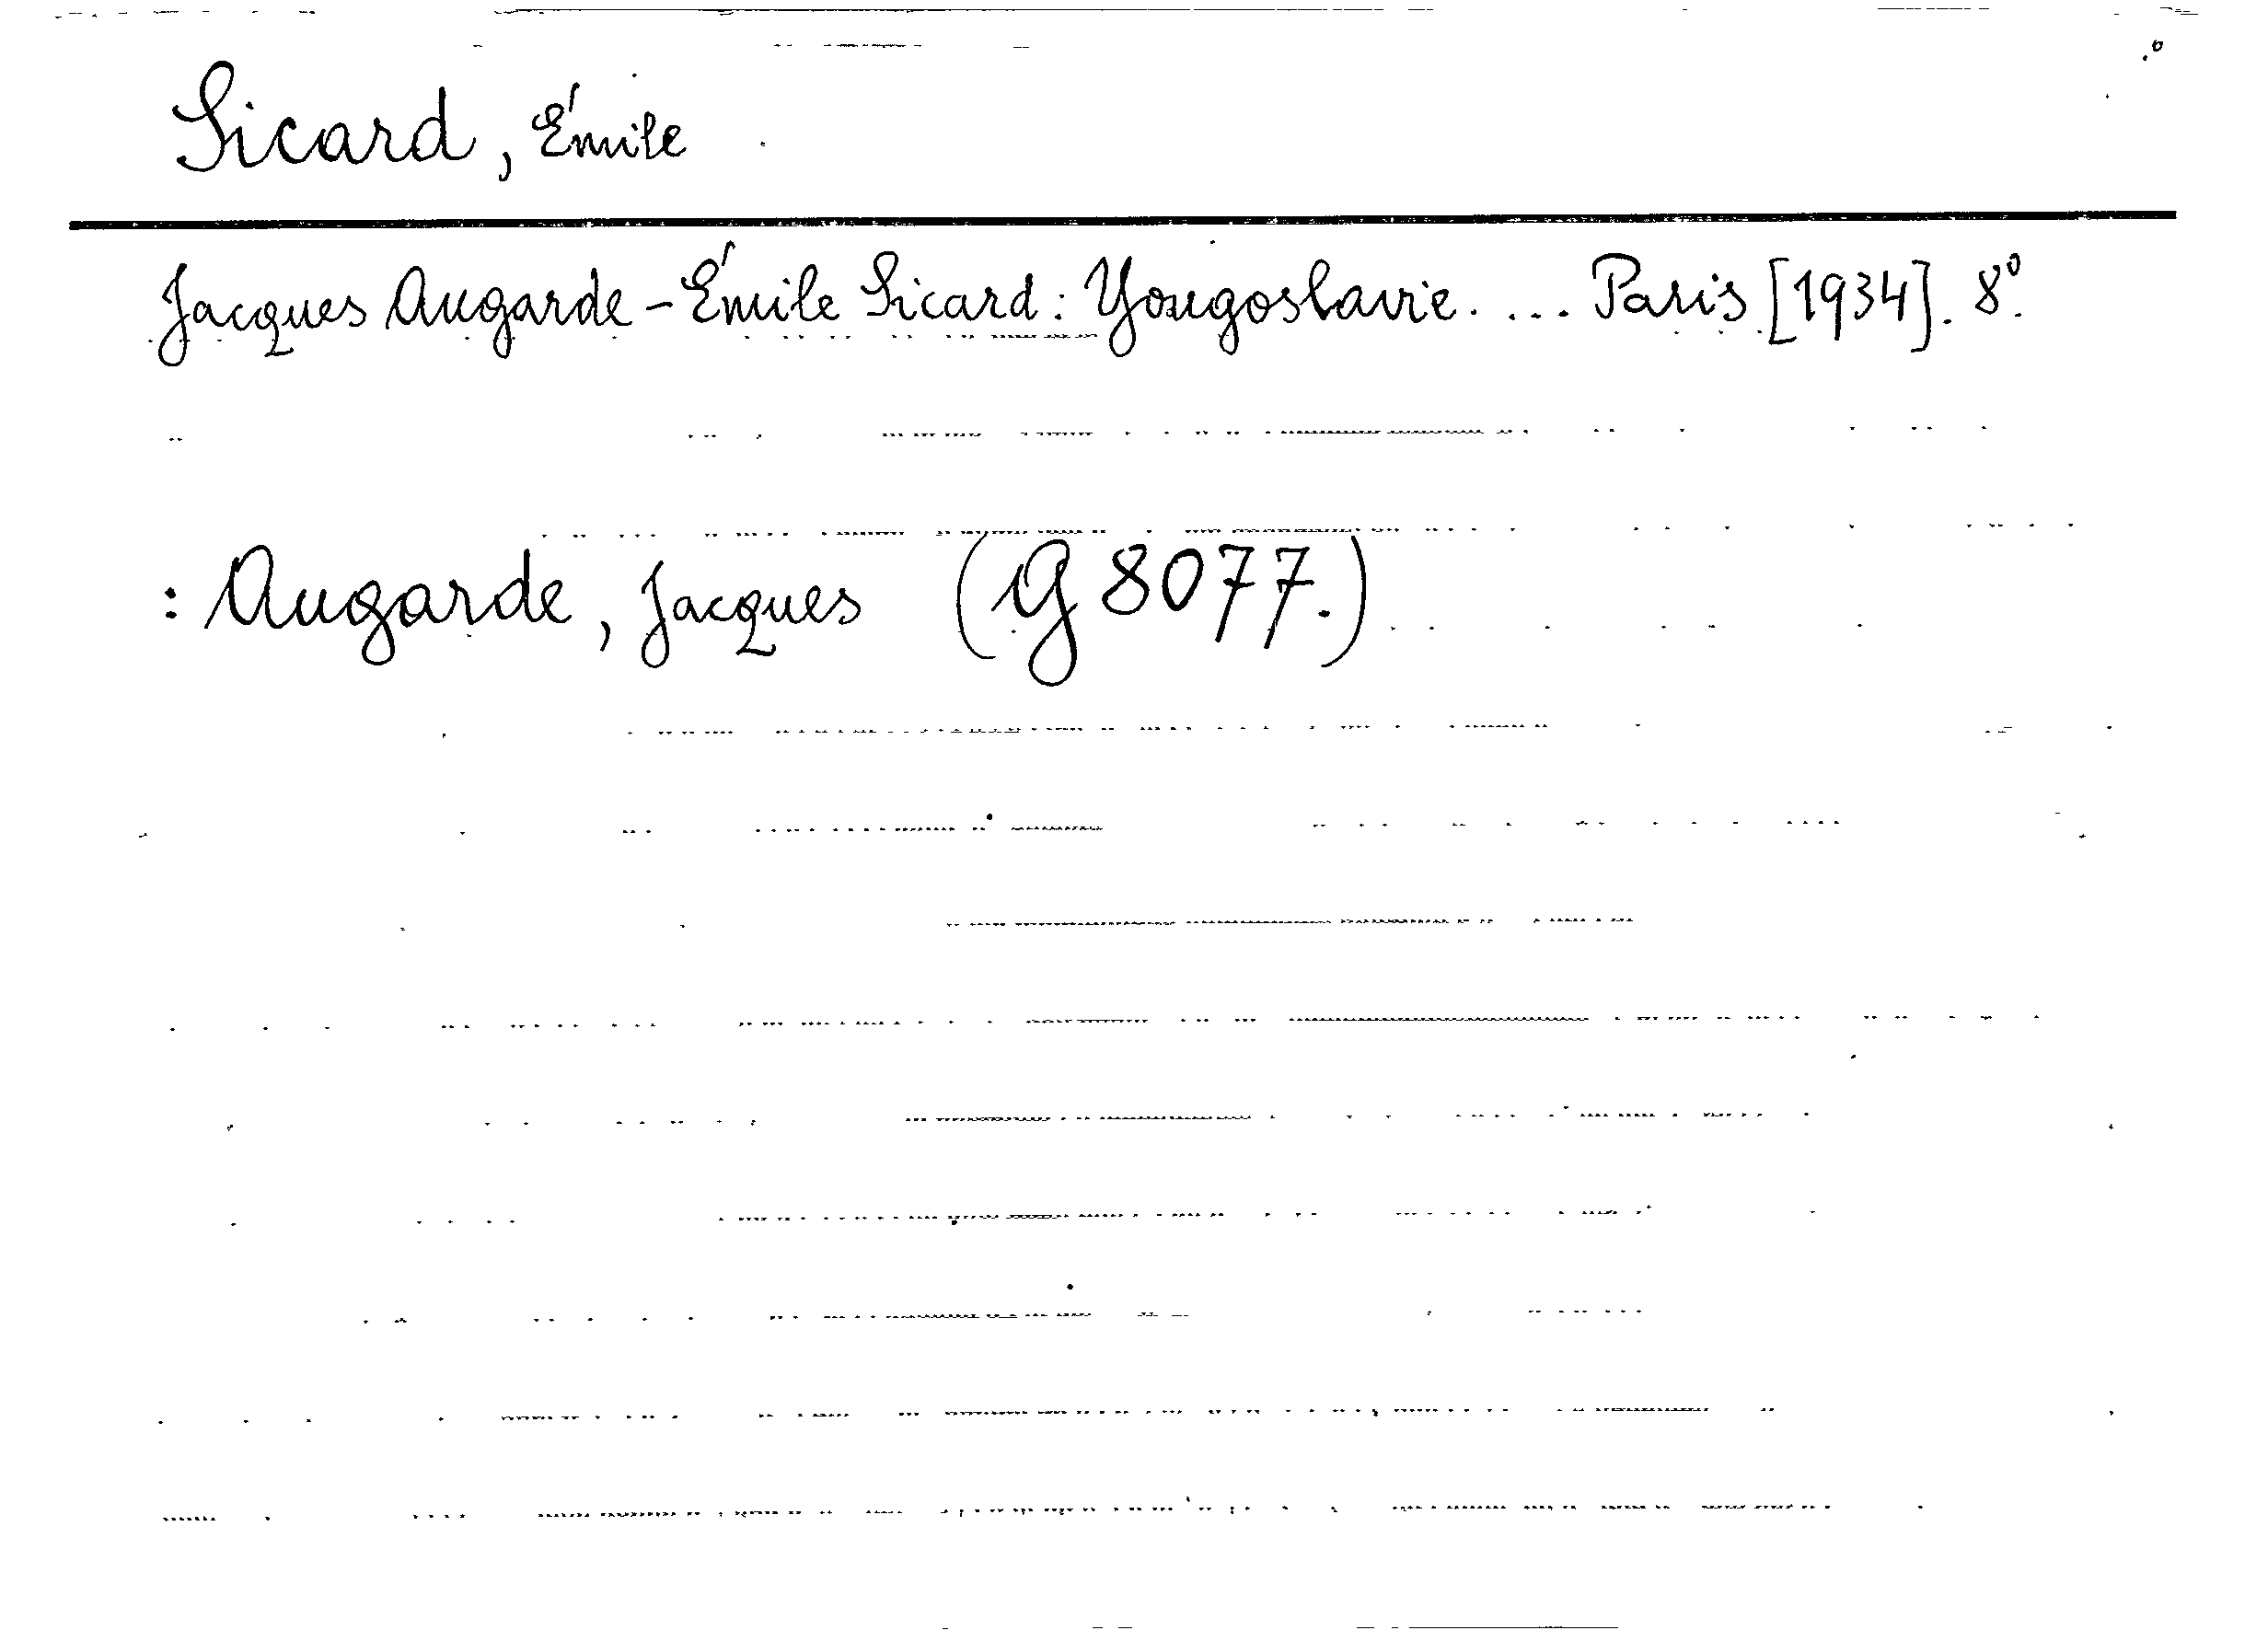 Sicard, Émile
Jacques Augarde - Émile Sicard: Yougoslavie. ... Paris [1934]. 8º.
: Augarde, Jacques (G 8077.)